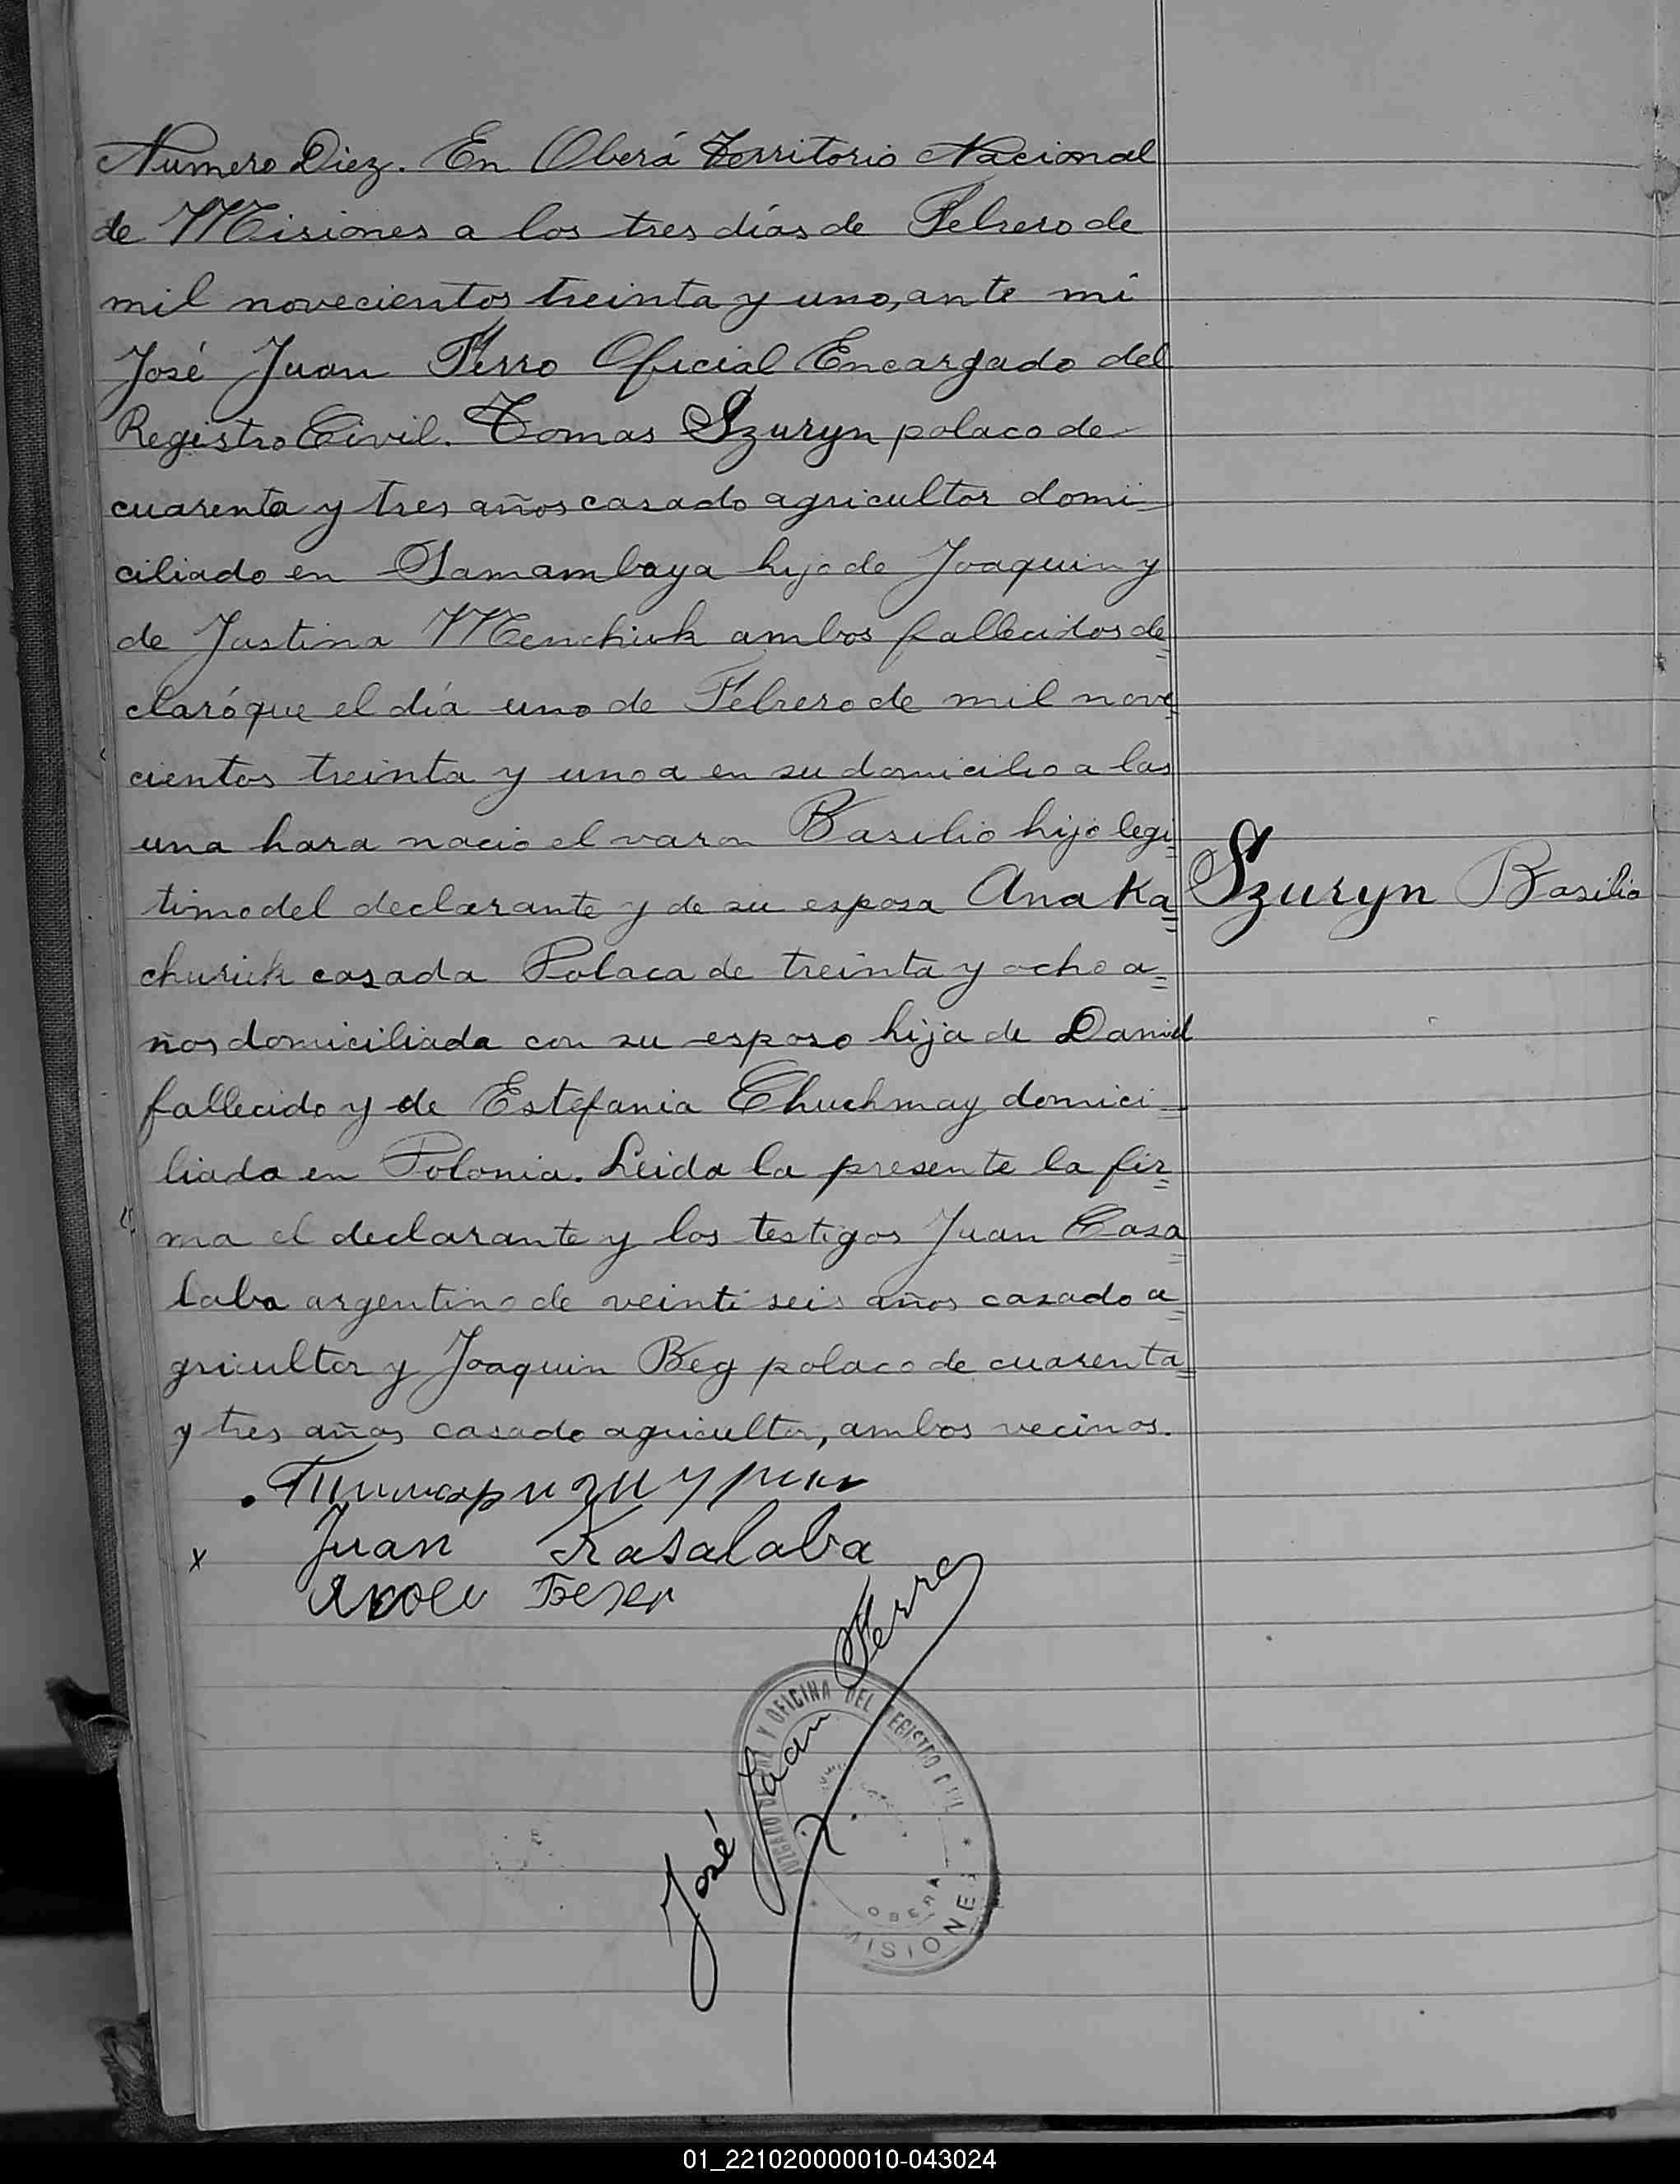 Numero Diez. En Oberá Territorio Nacional
de Misiones a los tres días de Febrero de
mil novecientos treinta y uno, ante mi
José Juan Ferro Oficial Encargado del
Registro Civil. Tomas Szuryn polaco de
cuarenta y tres años casado agricultor domi-
ciliado en Samambaya hijo de Joaquin y
de Justina Menchiuk ambos fallecidos de=
claró que el día uno de Febrero de mil nove=
cientos treinta y uno a en su domicilio a las
una hora nacio el varon Basilio hijo legi=
timo del declarante y de su esposa Ana Ka=
Szuryn Basilio
churiuk casada Polaca de treinta y ocho a=
ños domiciliada con su esposo hija de Daniel
fallecido y de Estefania Chuchmay domici=
liada en Polonia. Leida la presente la fir=
ma el declarante y los testigos Juan Casa=
laba argentino de veinti seis años casado a=
gricultor y Joaquin Beg polaco de cuarenta=
y tres años casado agricultor, ambos vecinos.
x Juan Kasalaba
José Juan Ferro
Y OFICINA DEL REGISTRO CIVIL
OBERA
MISIONES
01_221020000010-043024